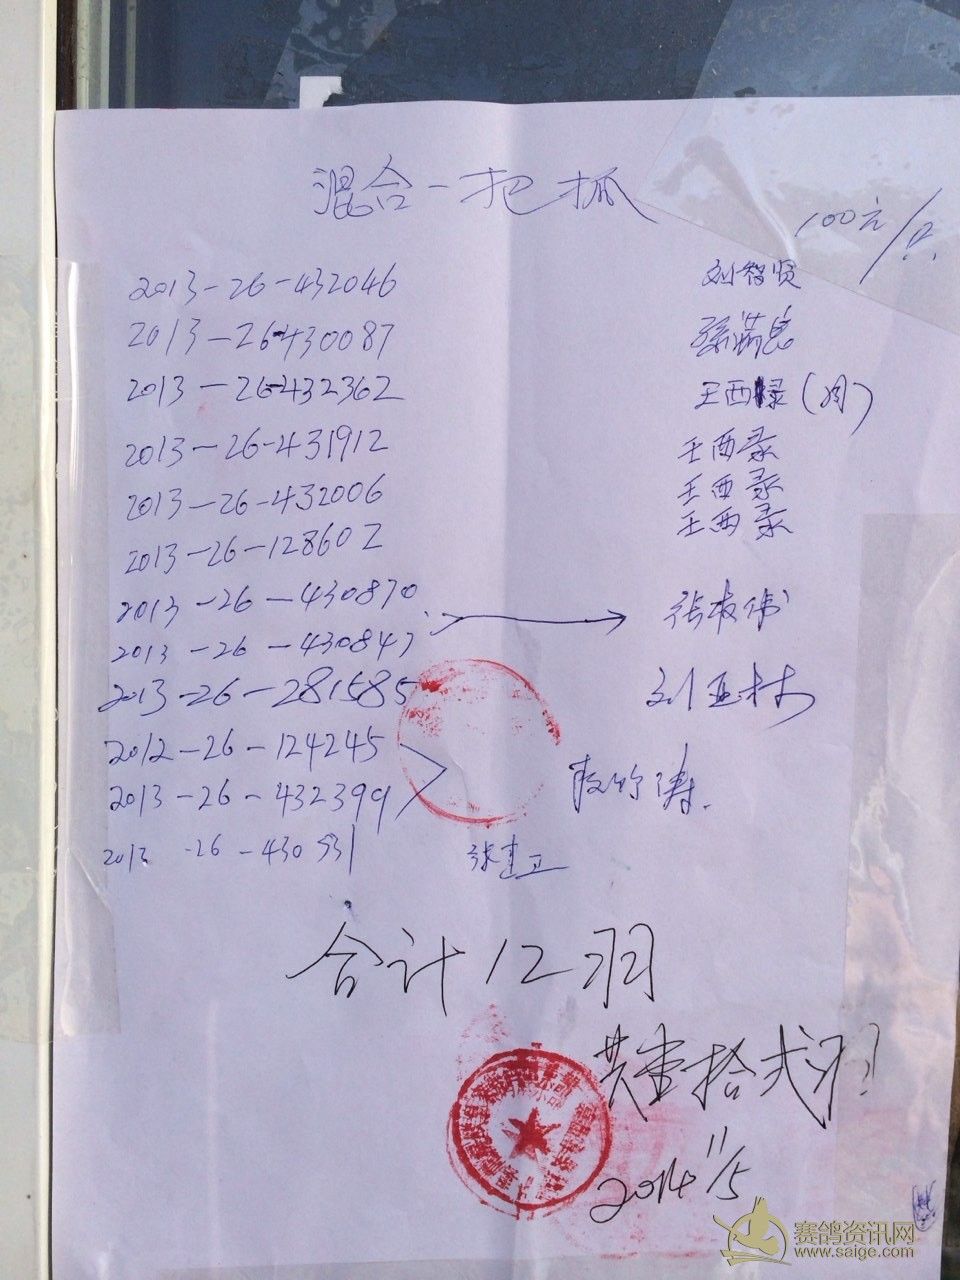 混合一把抓
100元/
2013-26-432046 刘智贤
2013-26-430087 张满良
2013-26-432362 王西録
2013-26-431912 王西录
2013-26-432006 王西录
2013-26-128602 王西录
2013-26-430870 张
2013-26-430847
2013-26-281585 刘亚林
2012-26-124245
2013-26-432399 涛
2013-26-430931 张建卫
合计12羽
共壹拾贰羽
2014 11/5
赛鸽资讯网
www.saige.com